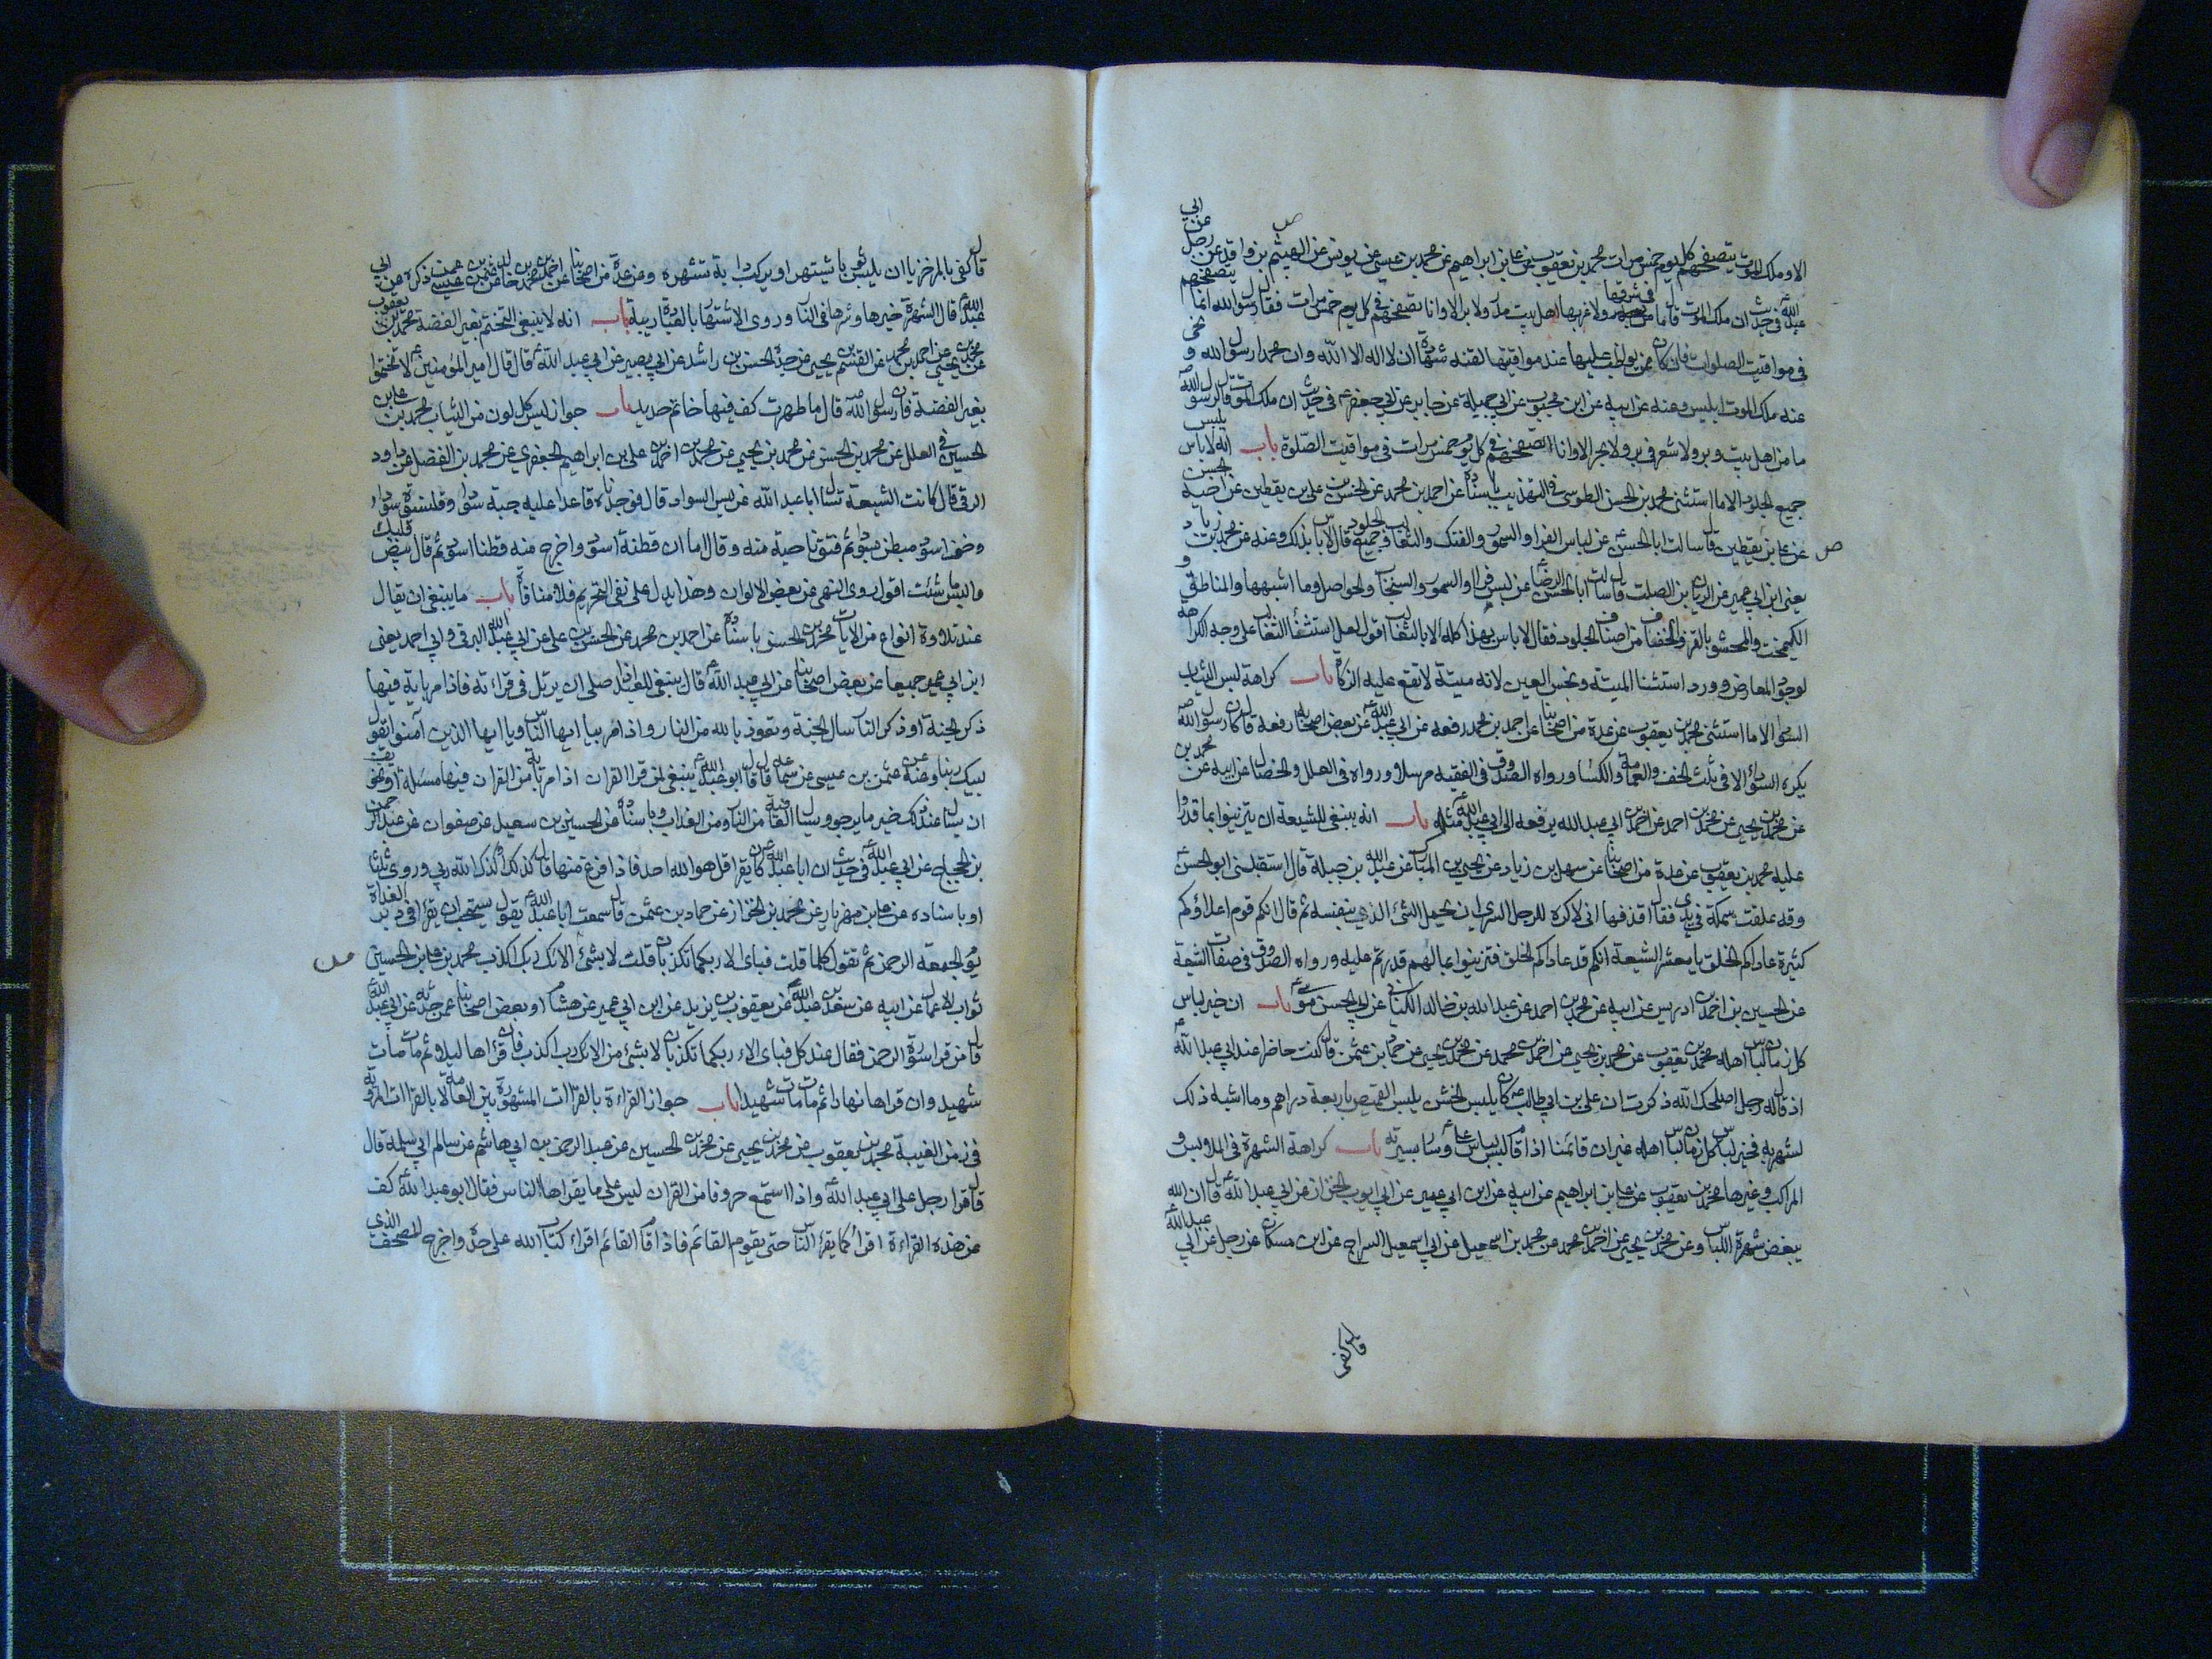 الا وملك الموت يتصفحهم كل يوم خمس مرات محمد بن يعقوب عن علي بن ابراهيم عن محمد بن عيسى عن يونس عن الهيثم بن واقد عن رجل عن ابي
عبد الله في حديث ان ملك الموت قال ما من اهل بيت مدر ولا بر الا وانا اتصفحهم في كل يوم خمس مرات فقال رسول الله انما يتصفحهم
في مواقيت الصلوات فان كان ممن يواظب عليها عند مواقيتها لقنه شهادة ان لا اله الا الله وان محمدا رسول الله و نحى
عنه ملك الموت ابليس وعنه عن ابيه عن ابن محبوب عن ابي جميلة عن جابر عن ابي جعفر في حديث ان ملك الموت قال لرسول الله
ما من اهل بيت وبر ولا شعر في بر ولا بحر الا وانا اتصفحهم في كل يوم خمس مرات في مواقيت الصلوة باب انه لا باس بلبس
جميع الجلود الا ما استثنى محمد بن الحسن الطوسي في التهذيب باسناده عن احمد بن محمد عن الحسن بن علي بن يقطين عن اخيه الحسين
عن علي بن يقطين قال سالت ابا الحسن عن لباس الفراء والسمور والفنك والثعالب وجميع الجلود قال لا باس بذلك وعنه عن محمد بن زياد
يعني ابن ابي عمير عن الريان بن الصلت قال سالت ابا الحسن الرضا عن لبس فراء والسمور والسنجاب والحواصل وما اشبهها والمناطق و
الكيمخت والمحشو بالقز والخفاف من اصناف الجلود فقال لا باس بهذا كله الا بالثعالب اقول لعل استثناء الثعالب على وجه الكراهة
لوجود المعارض وورد استثنا الميتة ونجس العين لانه ميتة لا تقع عليه الذكاة باب كراهة لبس الثياب
السود الا ما استثنى محمد بن يعقوب عن عدة من اصحابنا عن احمد بن محمد رفعه عن ابي عبد الله عن بعض اصحابه رفعه قال كان رسول الله
يكره السواد الا في ثلث الخف والعمامة والكساء ورواه الصدوق في الفقيه مرسلا ورواه في العلل والخصال عن ابيه عن محمد بن
عن محمد بن يحيى عن محمد بن احمد عن احمد بن ابي عبد الله يرفعه الى ابي عبد الله مثله باب انه ينبغي للشيعة ان يتزينوا بما قدروا
عليه محمد بن يعقوب عن عدة من اصحابنا عن سهل بن زياد عن يحيى بن المبارك عن عبد الله بن جبلة قال استقبلني ابو الحسن
وقد علقت سمكة في يدي فقال اقذفها اني لاكره للرجل السري ان يحمل الشيء الدني بنفسه ثم قال انكم قوم اعداؤكم
كثيرة عاداكم الخلق يا معشر الشيعة انكم قد عاداكم الخلق فتزينوا بما لهم قدرتم عليه ورواه الصدوق في صفات الشيعة
عن الحسين بن احمد بن ادريس عن ابيه عن محمد بن احمد عن عبد الله بن خالد الكناني عن ابي الحسن موسى باب ان خير لباس
كل زمان لباس اهله محمد بن يعقوب عن محمد بن يحيى عن احمد بن محمد عن محمد بن يحيى عن حماد بن عثمن قال كنت حاضرا عند ابي عبد الله
اذ قال له رجل اصلحك الله ذكرت ان علي بن ابي طالب كان يلبس الخشن يلبس القميص باربعة دراهم وما اشبه ذلك
لشهر به فخير لباس كل زمان لباس اهله غير ان قائمنا اذا قام لبس لباس علي وسار بسيرته باب كراهة الشهرة في الملابس و
المراكب وغيرها محمد بن يعقوب عن علي بن ابراهيم عن ابيه عن ابن ابي عمير عن ابي ايوب الخزاز عن ابي عبد الله قال ان الله
يبغض شهرة اللباس وعن محمد بن يحيى عن احمد بن محمد عن محمد بن اسمعيل عن ابي اسمعيل السراج عن ابن مسكان عن رجل عن ابي عبد الله
قال كفى
قال كفى بالمرء خزيا ان يلبس ثوبا يشتهر او يركب دابة تشهره وعن عدة من اصحابنا عن احمد بن محمد بن خالد عن عثمن بن عيسى عمن ذكره عن ابي
عبد الله قال الشهرة خيرها وشرها في النار وروى الاشتهار بالعبادة ريبة باب انه لا ينبغي التختم بغير الفضة محمد بن يعقوب
عن محمد بن يحيى عن احمد بن محمد عن القسم بن يحيى عن جده الحسن بن راشد عن ابي بصير عن ابي عبد الله قال قال امير المؤمنين لا تختموا
بغير الفضة فان رسول الله قال ما طهرت كف فيها خاتم حديد باب جواز لبس كل لون من الثياب محمد بن علي بن
الحسين في العلل عن محمد بن الحسن عن محمد بن يحيى عن محمد بن احمد عن علي بن ابراهيم الجعفري عن محمد بن الفضل عن داود
الرقي قال كانت الشيعة تسال ابا عبد الله عن لبس السواد قال فوجدناه قاعدا عليه جبة سوداء وقلنسوة سوداء
وخف اسود مبطن بسواد ثم فتق ناحية منه وقال اما ان قطنه اسود واخرج منه قطنا اسود ثم قال بيض قلبك
والبس ما شئت اقول روى النهي عن بعض الالوان وهذا يدل على نفي التحريم فلا منافاة باب ما ينبغي ان يقال
عند تلاوة انواع من الايات محمد بن الحسن باسناده عن احمد بن محمد عن الحسن بن علي عن ابي عبد الله البرقي وابي احمد يعني
ابن ابي عمير جميعا عن بعض اصحابنا عن ابي عبد الله قال ينبغي للعبد اذا صلى ان يرتل في قراءته فاذا مر باية فيها
ذكر الجنة او ذكر النار سال الجنة وتعوذ بالله من النار واذا مر بيا ايها الناس ويا ايها الذين آمنوا يقول
لبيك ربنا وعنه عن عثمن بن عيسى عن سماعة قال قال ابو عبد الله ينبغي لمن قرا القران اذا مر باية من القران فيها مسئلة او تخويف
ان يسال عند ذلك خير ما يرجو ويسال العافية من النار ومن العذاب وباسناده عن الحسين بن سعيد عن صفوان عن عبد الرحمن
بن الحجاج عن ابي عبد الله في حديث ان ابا عبد الله كان يقرا قل هو الله احد فاذا فرغ منها قال كذلك الله ربي وروى ثلثا
او باسناده عن علي بن مهزيار عن محمد بن يحيى الخزاز عن حماد بن عثمن قال سمعت ابا عبد الله يقول يستحب ان يقرا في دبر الغداة
يوم الجمعة الرحمن ثم تقول كلما قلت فباي الاء ربكما تكذبان قلت لا بشيء من الائك رب اكذب محمد بن علي بن الحسين في
ثواب الاعمال عن ابيه عن سعد بن عبد الله عن يعقوب بن يزيد عن ابن ابي عمير عن هشام او بعض اصحابنا عمن حدثه عن ابي عبد الله
قال من قرا سورة الرحمن فقال عند كل فباي الاء ربكما تكذبان لا بشيء من الائك رب اكذب فان قراها ليلا ثم مات مات
شهيدا وان قراها نهارا ثم مات مات شهيدا باب جواز القراءة بالقراات المشهورة بين العامة لا بالقراات المروية
في زمن الغيبة محمد بن يعقوب عن محمد بن يحيى عن محمد بن الحسين عن عبد الرحمن بن ابي هاشم عن سالم ابي سلمة قال
قال قرا رجل على ابي عبد الله وانا استمع حروفا من القران ليس على ما يقراها الناس فقال ابو عبد الله كف
عن هذه القراءة اقرا كما يقرا الناس حتى يقوم القائم فاذا قام القائم اقرا كتاب الله على حده واخرج المصحف الذي